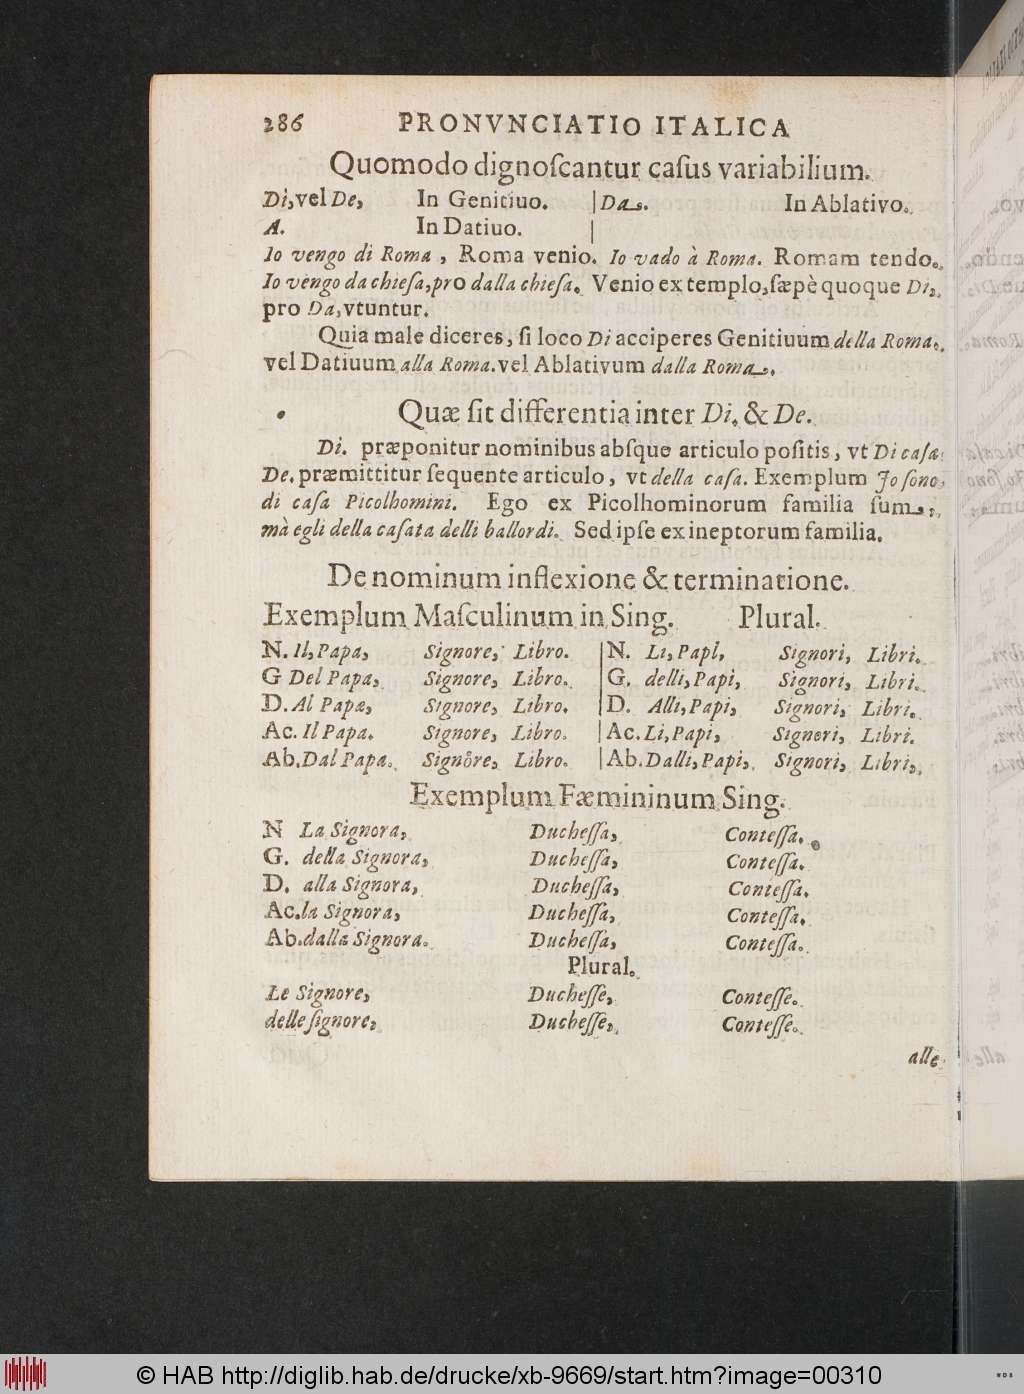 286 PRONVNCIATIO ITALICA
Quomodo dignoſcantur caſus variabilium.
Di, vel De, In Genitiuo. | Da. In Ablativo.
A. In Datiuo. |
Io vengo di Roma, Roma venio. Io vado à Roma. Romam tendo.
Io vengo da chieſa, pro dalla chieſa. Venio ex templo, ſæpè quoque Di,
pro Da, vtuntur.
Quia male diceres, ſi loco Di acciperes Genitiuum della Roma.
vel Datiuum alla Roma. vel Ablativum dalla Roma.
Quæ ſit differentia inter Di, & De.
Di. præponitur nominibus abſque articulo poſitis, vt Di caſa.
De. præmittitur ſequente articulo, vt della caſa. Exemplum Jo ſono
di caſa Picolhomini. Ego ex Picolhominorum familia ſum,
mà egli della caſata delli ballordi. Sed ipſe ex ineptorum familia.
De nominum inflexione & terminatione.
Exemplum Maſculinum in Sing. Plural.
N. Il, Papa, Signore, Libro. | N. Li, Papi, Signori, Libri.
G Del Papa, Signore, Libro. | G. delli, Papi, Signori, Libri.
D. Al Papa, Signore, Libro. | D. Alli, Papi, Signori, Libri.
Ac. Il Papa. Signore, Libro. | Ac. Li, Papi, Signori, Libri.
Ab. Dal Papa. Signore, Libro. | Ab. Dalli, Papi, Signori, Libri,
Exemplum Fæmininum Sing.
N La Signora, Ducheſſa, Conteſſa.
G. della Signora, Ducheſſa, Conteſſa.
D. alla Signora, Ducheſſa, Conteſſa.
Ac. la Signora, Ducheſſa, Conteſſa.
Ab. dalla Signora. Ducheſſa, Conteſſa.
Plural.
Le Signore, Ducheſſe, Conteſſe.
delle ſignore, Ducheſſe, Conteſſe.
alle
© HAB http://diglib.hab.de/drucke/xb-9669/start.htm?image=00310